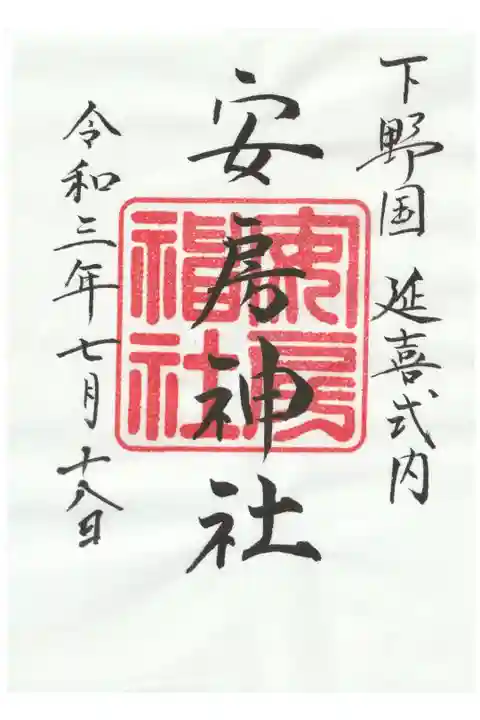 下野国 延喜式内
安房神社
安房神社
令和三年七月十八日